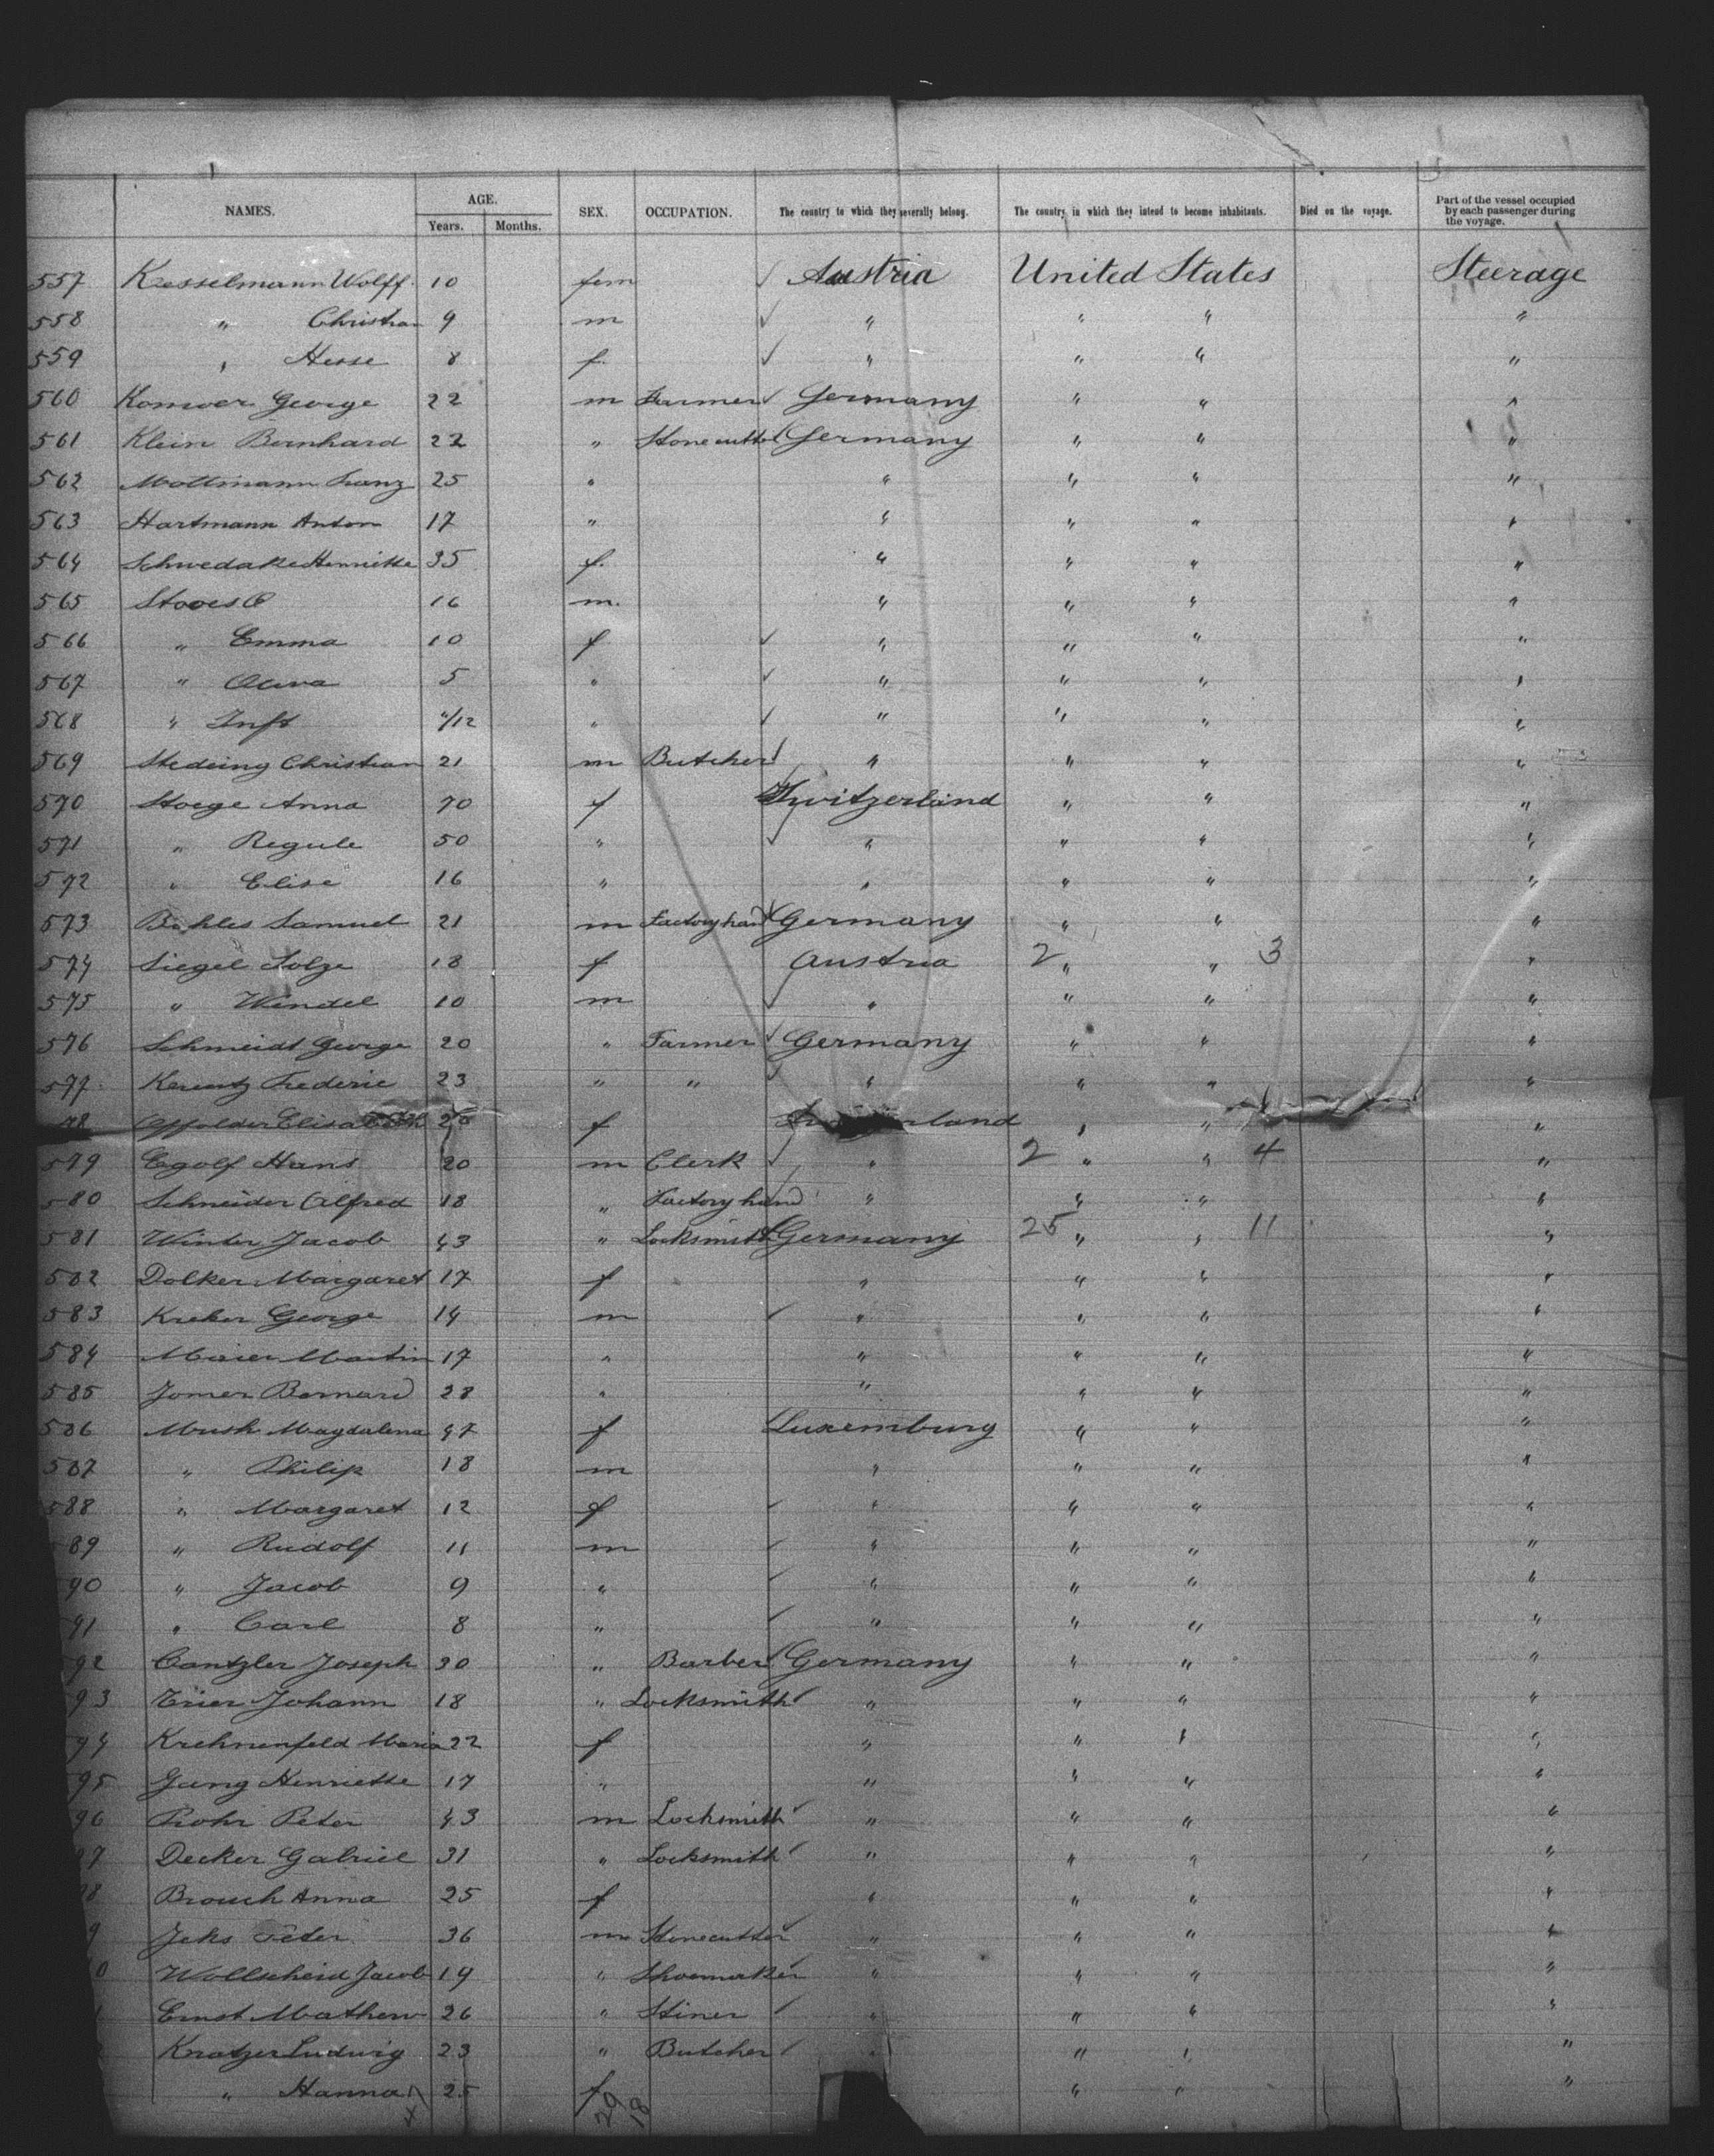 NAMES. AGE. Years. Months. SEX. OCCUPATION. The country to which they severally belong. The country in which they intend to become inhabitants. Died on the voyage. Part of the vessel occupied by each passenger during the voyage.
557 Kesselmann Wolff. 10 fem Austria United States Steerage
558 " Christian 9 m " " " "
559 " Hesse 8 f. " " " "
560 George 22 m Farmer Germany " " "
561 Klein Bernhard 22 " Stonecutter Germany " " "
562 25 " " " " "
563 Hartmann Anton 17 " " " " "
564 Henriette 35 f. " " " "
565 16 m. " " " "
566 " Emma 10 f " " " "
567 " 5 " " " " "
568 " Inft /12 " " " " "
569 Christian 21 m Butcher " " " "
570 Stoege Anna 70 f Switzerland " " "
571 " Regule 50 " " " " "
572 " Elise 16 " " " " "
573 Samuel 21 m Factory hand Germany " " "
574 Siegel 18 f Austria 2 " " 3 "
575 " Windel 10 m " " " "
576 Schmeidt George 20 " Farmer Germany " " "
577 Frederic 23 " " " " " "
78 f " " "
579 Egolf Hans 20 m Clerk " 2 " " 4 "
580 Schneider Alfred 18 " Factory hand " " " "
581 Winter Jacob 43 " Locksmith Germany 25 " " 11 "
582 Dolker Margaret 17 f " " " "
583 Kreker George 14 m " " " "
584 Maier Martin 17 " " " " "
585 Jomer Bernard 28 " " " " "
586 Mush Magdalena 47 f Luxemburg " " "
587 " Philip 18 m " " " "
588 " Margaret 12 f " " " "
89 " Rudolf 11 m " " " "
90 " Jacob 9 " " " " "
91 " Carl 8 " " " " "
92 Cantzler Joseph 30 " Barber Germany " " "
93 Trier Johann 18 " Locksmith " " " "
94 Krehnenfeld Maria 22 f " " " "
95 Henriette 17 " " " " "
96 Rohr Peter 43 m Locksmith " " " "
97 Decker Gabriel 31 " Locksmith " " " "
98 Brouch Anna 25 f " " " "
9 Jeks Peter 36 m Stonecutter " " " "
0 Wollscheid Jacob 19 " Shoemaker " " " "
Ernst Mathew 26 " Stiner " " " "
Kratzer Ludwig 23 " Butcher " " " "
" Hanna 25 f " " "
29 18